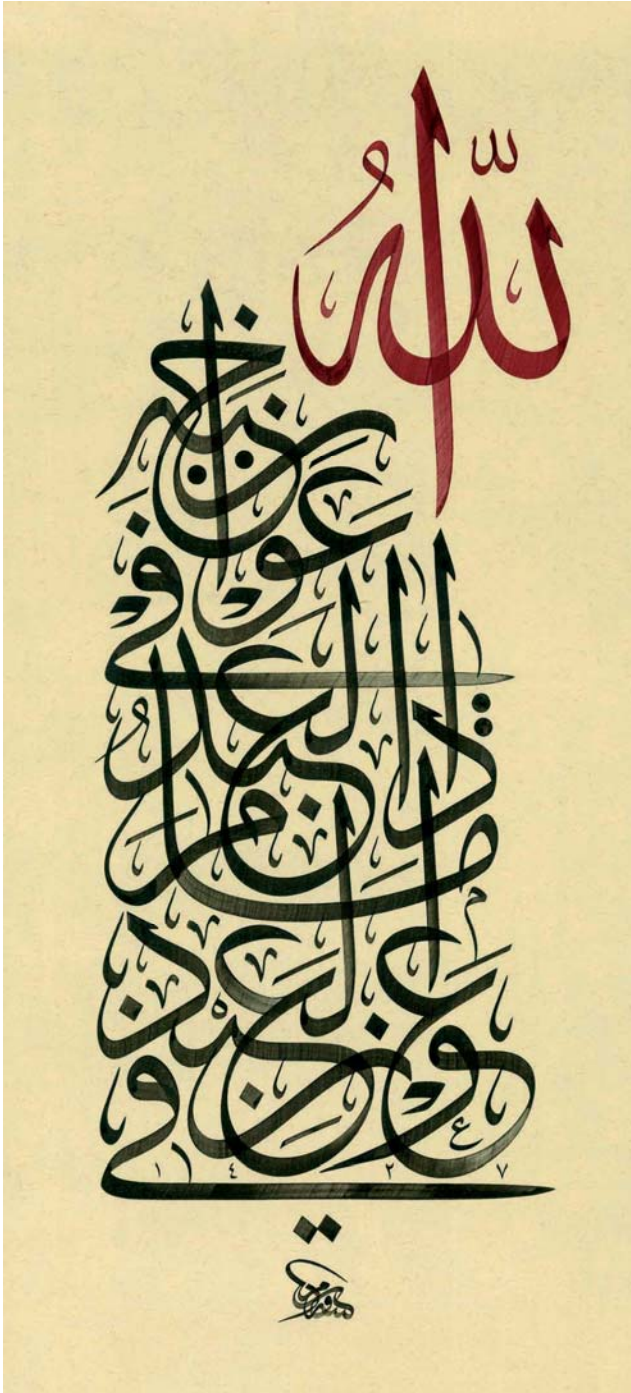 اللهُ
في عون العبد
ما دام العبد
في عون أخيه
١٤٢٧